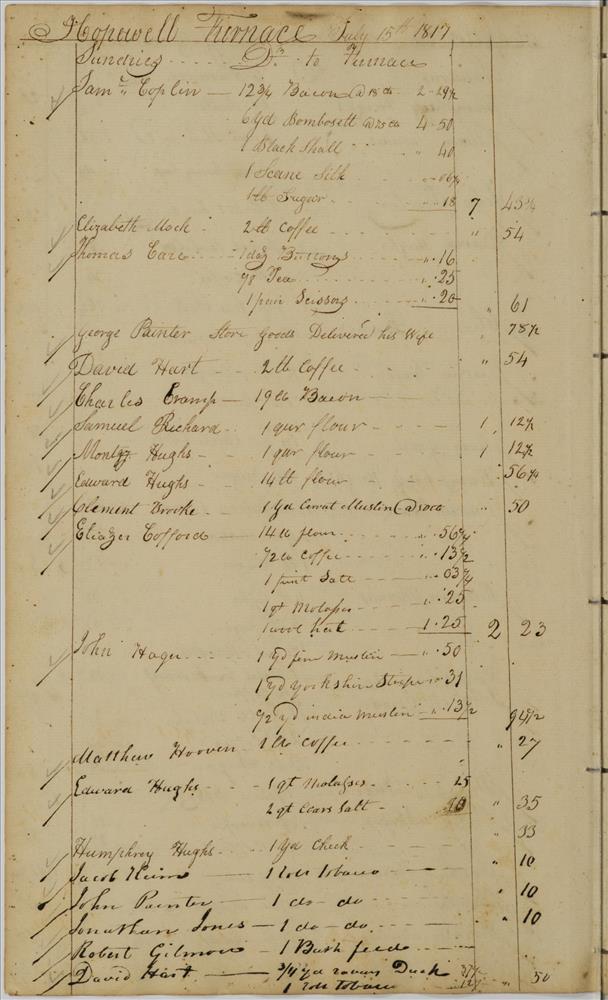 Hopewell Furnace July 15th 1817
Sundries Drs to Furnace
Saml Coplin 12 3/4 Bacon @ 18 cts 2 29 1/2
6 yd Bombosett @ 75 cts 4 50
1 Black Shall 40
1 Scane Silk 06 1/4
1 lb Sugar 18 7 43 3/4
Elizabeth Mock 2 lb Coffee " 54
Thomas Care 1 doz Buttons " 16
1/8 Tea " 25
1 pair Scissors " 20 " 61
George Painter Store Goods Delivered his Wife " 78 1/2
David Hart 2 lb Coffee " 54
Charles Cramp 19 lb Bacon
Samuel Richard 1 qur flour 1 12 1/2
Montgy Hughs 1 qur flour 1 12 1/2
Edward Hughs 14 lb flour 56 1/4
Clement Brooke 1 yd Cravat Muslin @ 50 cts " 50
Eliazer Cofford 14 lb flour " 56 1/4
1/2 lb Coffee " 13 1/2
1 pint Salt " 03 3/4
1 qt Molasses " 25
1 wool hat 1 25 2 23
John Hager 1 yd fine Muslin " 50
1 yd Yorkshire Stripe " 31
1/2 yd india Muslin " 13 1/2 94 1/2
Matthew Hooven 1 lb Coffee " 27
Edward Hughs 1 qt Molasses 25
2 qt Coars Salt 10 " 35
Humphrey Hughs 1 yd Check " 33
Jacob Heim 1 roll tobacco " 10
John Painter 1 do do " 10
Jonathan Jones 1 do do " 10
Robert Gilmore 1 Bush feed
David Hart 3/4 yd Duck 37 1/2
1 roll tobacco 12 1/2 " 50